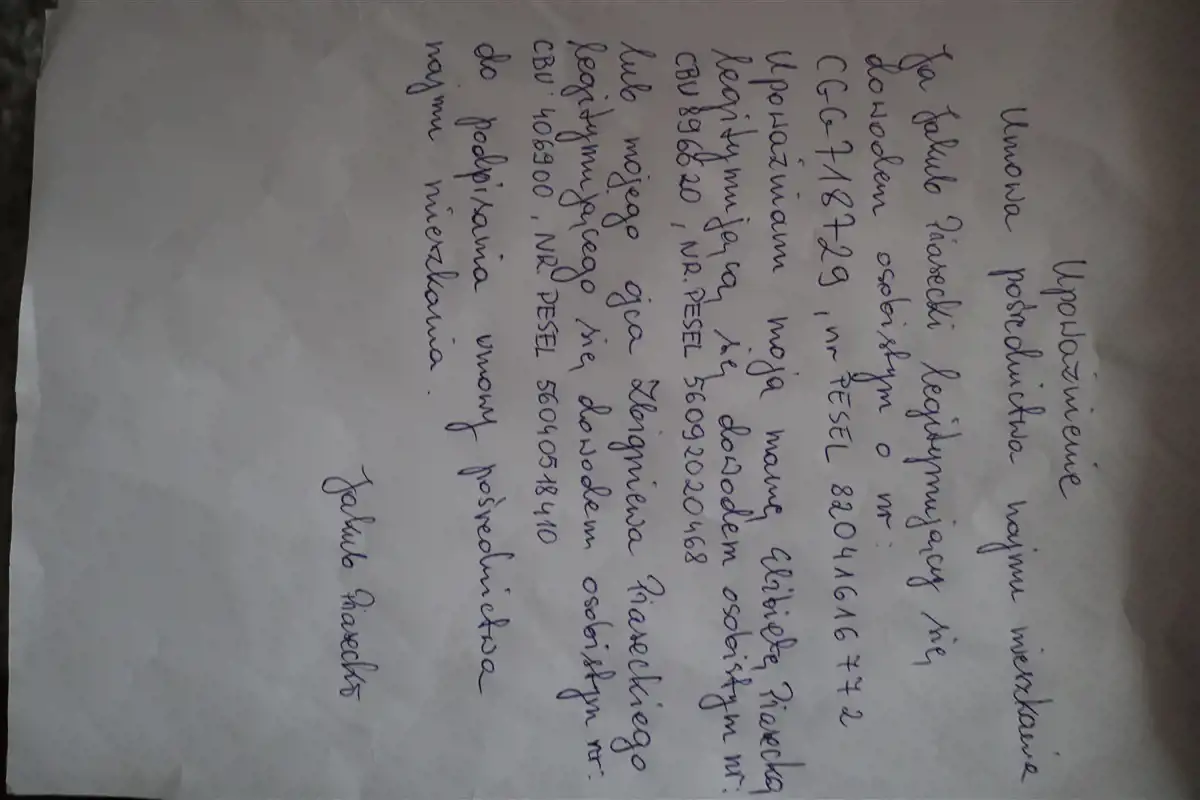 Upoważnienie
Umowa pośrednictwa najmu mieszkania
Ja Jakub Piasecki legitymujący się
dowodem osobistym o nr:
CGG 718729, nr PESEL 82041616772
Upoważniam moja mamę Elżbietę Piasecką
legitymującą się dowodem osobistym nr:
CBU 896620, NR. PESEL 56092020468
lub mojego ojca Zbigniewa Piaseckiego
legitymującego się dowodem osobistym nr:
CBU 406900, NR PESEL 56040518410
do podpisania umowy pośrednictwa
najmu mieszkania.
Jakub Piasecki